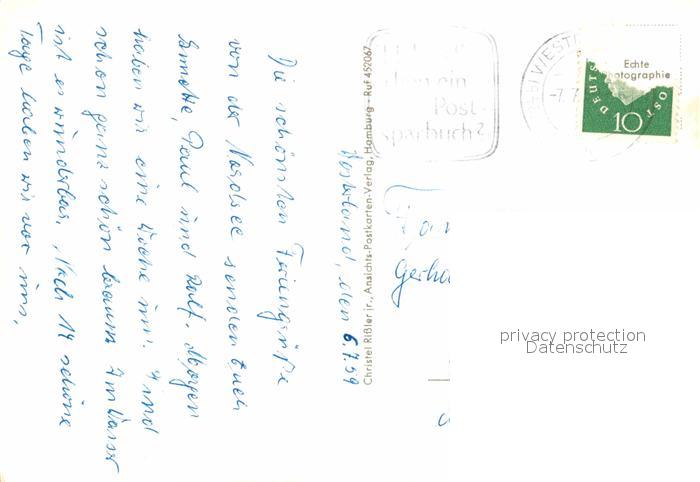 Westerland, den 6.7.59
Die schönsten Feriengrüße
von der Nordsee senden Euch
Annette, Paul und Rolf. Morgen
haben wir eine Woche um. Sind
schon ganz schön braun. Im Wasser
ist es wunderbar. Noch 14 schöne
Tage haben wir vor uns.
Christel Rißler jr., Ansichts-Postkarten-Verlag, Hamburg - Ruf 452067
ein
Post-
sparbuch?
WESTE
-7.7
Echte
Photographie
DEUTS
POST
10
Fam
Gerha
privacy protection
Datenschutz